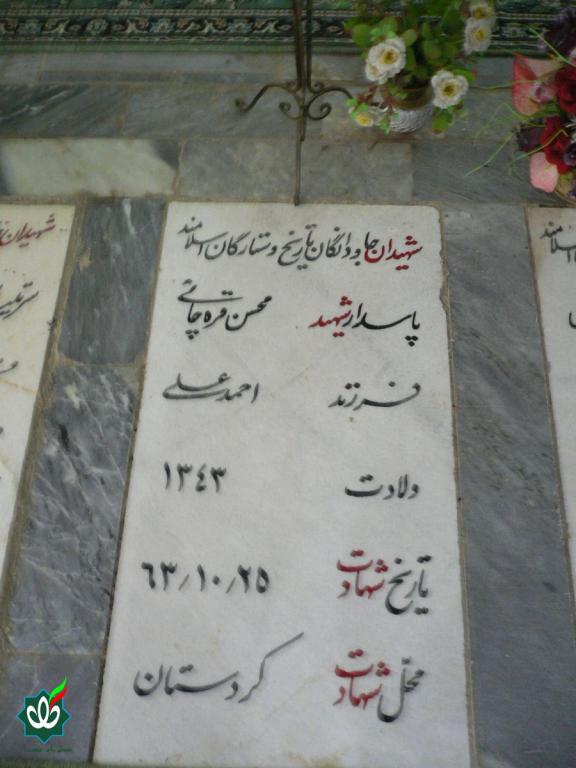 شهیدان جاودانگان تاریخ و ستارگان اسلامند
پاسدار شهید محسن قره چائی
فرزند احمد علی
ولادت ۱۳٤۳
تاریخ شهادت ٦۳/۱۰/۲۵
محلّ شهادت کردستان